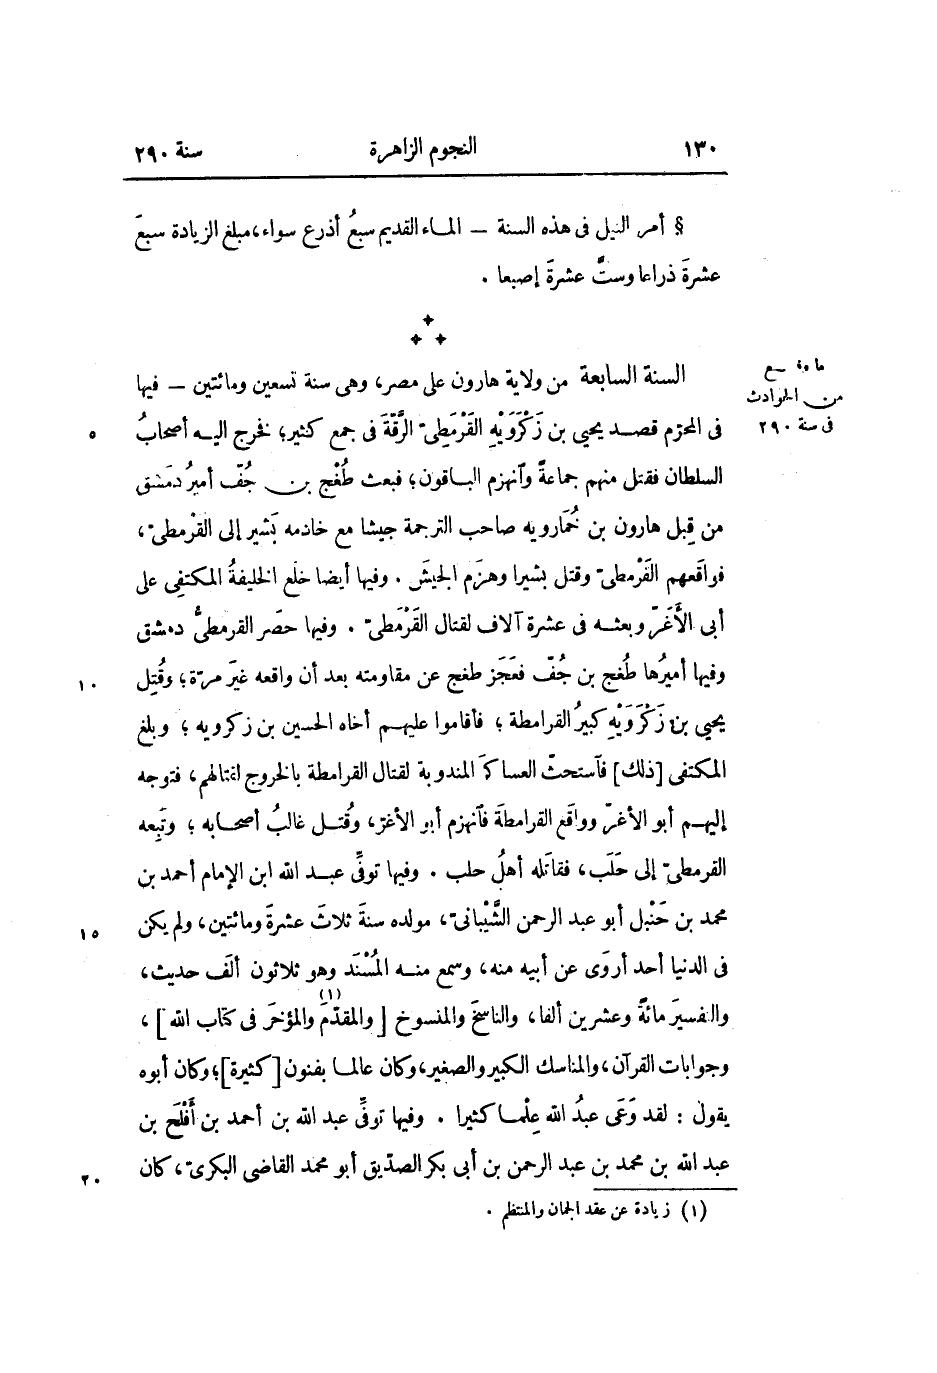 ١٣٠ النجوم الزاهرة سنة ٢٩٠
§ أمر النيل فى هذه السنة — الماء القديم سبعُ أذرع سواء، مبلغ الزيادة سبعَ
عشرةَ ذراعا وستَّ عشرةَ إصبعا .
السنة السابعة من ولاية هارون على مصر، وهى سنة تسعين ومائتين — فيها
ما وقع
من الحوادث
فى سنة ٢٩٠
فى المحرّم قصد يحيى بن زَكْرَوَيْهِ القَرْمَطِىّ الرَّقّةَ فى جمع كثير؛ فخرج اليه أصحابُ ٥
السلطان فقتل منهم جماعةً وآنهزم الباقون؛ فبعث طُغْج بن جُفّ أميرُ دمَشق
من قِبل هارون بن خُمَارويه صاحب الترجمة جيشا مع خادمه بَشير إلى القَرْمطىّ،
فواقَعهم القَرمطىّ وقتل بشيرا وهزَم الجيشَ . وفيها أيضا خلَع الخليفةُ المكتفِى على
أبى الأَغَرّ وبعثه فى عشرة آلاف لقتال القَرْمَطىّ . وفيها حصَر القرمطىُّ دمشق
وفيها أميرُها طُغج بن جُفّ فعَجَز طغج عن مقاومته بعد أن واقعه غيرَ مرّة؛ وقُتِل ١٠
يحيى بن زَكْرَوَيْهِ كبيرُ القرامطة؛ فأقاموا عليهم أخاه الحسين بن زكرويه؛ وبلغ
المكتفى [ذلك] فآستحثّ العساكرَ المندوبة لقتال القرامطة بالخروج لقتالهم، فتوجه
إليهم أبو الأغرّ وواقع القرامطةَ فآنهزم أبو الأغرّ، وقُتل غالبُ أصحابه؛ وتَبِعه
القرمطىّ إلى حَلَب، فقاتَله أهلُ حلب . وفيها توفِّى عبد الله ابن الإمام أحمد بن
محمد بن حَنْبل أبو عبد الرحمن الشَّيْبانىّ، مولده سنةَ ثلاثَ عشرةَ ومائتين، ولم يكن ١٥
فى الدنيا أحد أروَى عن أبيه منه، وسمع منه المُسْنَد وهو ثلاثون ألفَ حديث،
والتفسيرَ مائةً وعشرين ألفا، والناسخَ والمنسوخ [والمقدّمَ (١) والمؤخّرَ فى كتاب الله]،
وجوابات القرآن، والمناسك الكبير والصغير، وكان عالما بفنون [كثيرة]؛ وكان أبوه
يقول : لقد وَعَى عبدُ الله عِلْما كثيرا . وفيها توفِّى عبد الله بن أحمد بن أَفْلَح بن
عبد الله بن محمد بن عبد الرحمن بن أبى بكر الصدّيق أبو محمد القاضى البكرىّ، كان ٢٠
(١) زيادة عن عقد الجمان والمنتظم .